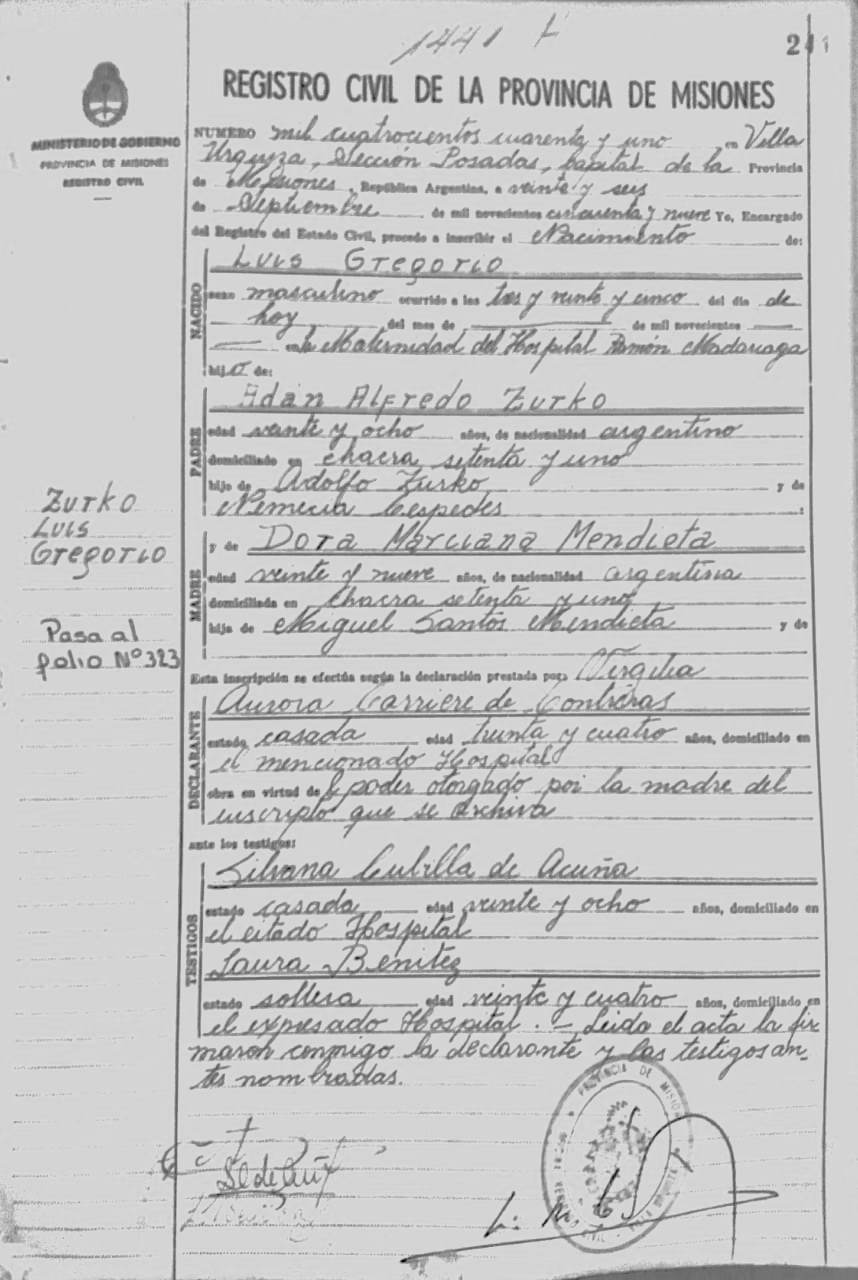 1441
241
REGISTRO CIVIL DE LA PROVINCIA DE MISIONES
MINISTERIO DE GOBIERNO
PROVINCIA DE MISIONES
REGISTRO CIVIL
NUMERO mil cuatrocientos cuarenta y uno en Villa
Urquyza, Sección Posadas, capital de la Provincia
de Misiones, República Argentina, a veinte y seis
de Septiembre de mil novecientos cincuenta y nueve Yo, Encargado
del Registro del Estado Civil, procedo a inscribir el Nacimiento de:
NACIDO
Luis Gregorio
sexo masculino ocurrido a las tres y veinte y cinco del día de
hoy del mes de de mil novecientos
en la Maternidad del Hospital Ramón Madariaga
hijo de:
PADRE
Adán Alfredo Zurko
edad veinte y ocho años, de nacionalidad argentino
domiciliado en chacra setenta y uno
hijo de Adolfo Zurko y de
Nemecia Cespedes :
Zurko
Luis
Gregorio
MADRE
y de Dora Marciana Mendieta
edad veinte y nueve años, de nacionalidad argentina
domiciliada en chacra setenta y uno
hija de Miguel Santos Mendieta y de
Pasa al
folio Nº 323
Esta inscripción se efectúa según la declaración prestada por: Virgilia
DECLARANTE
Aurora Carriere de Contreras
estado casada edad treinta y cuatro años, domiciliado en
el mencionado Hospital
obra en virtud de poder otorgado por la madre del
inscripto que se archiva
ante los testigos:
TESTIGOS
Silvana Cubilla de Acuña
estado casada edad veinte y ocho años, domiciliado en
el citado Hospital
Laura Benitez
estado soltera edad veinte y cuatro años, domiciliado en
el expresado Hospital. - Leida el acta la fir
maron conmigo la declarante y las testigos an-
tes nombradas.
PROVINCIA DE MISIONES